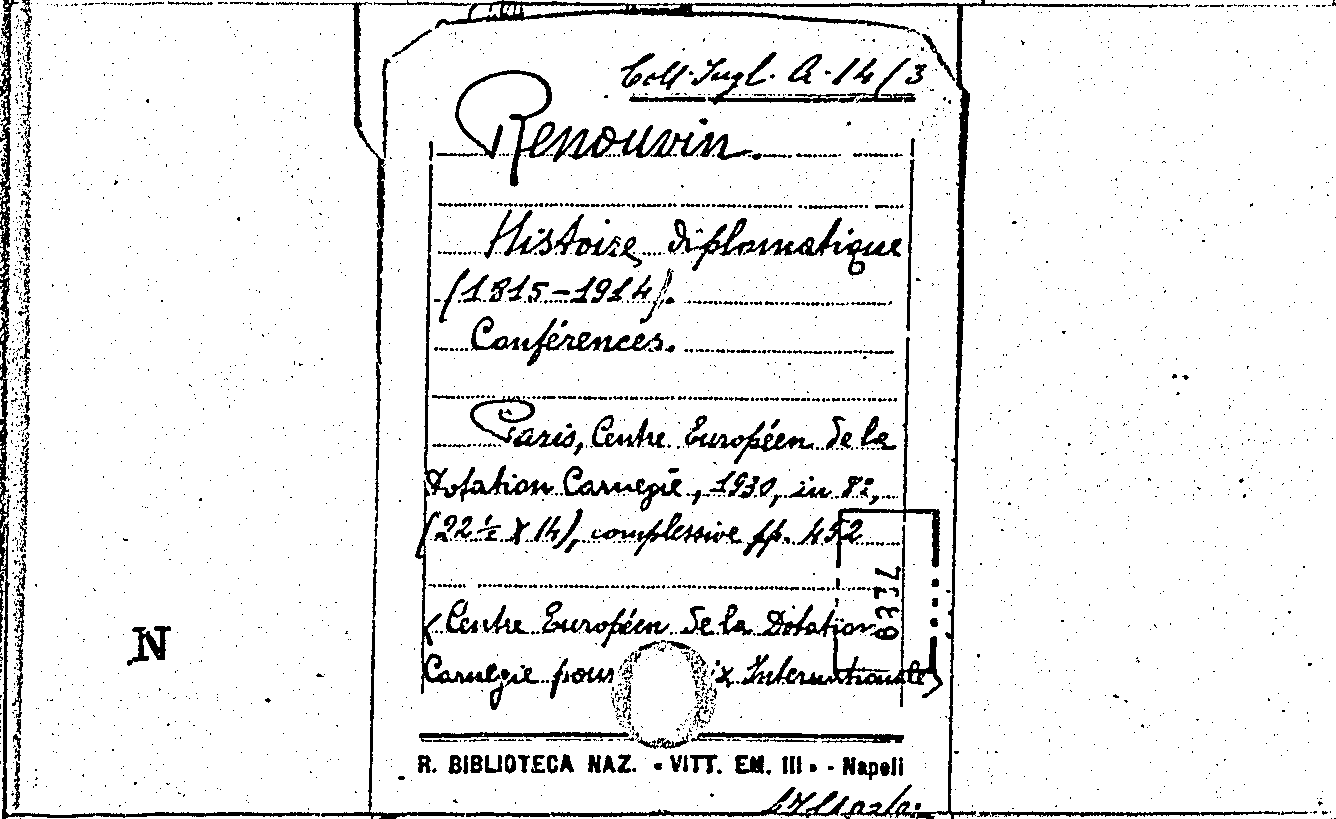 Coll. Ingl. A. 14/3
Renouvin.
Histoire diplomatique
(1815-1914).
Conférences.
Paris, Centre Européen de la
Dotation Carnegie, 1930, in 8º,
(22½ X 14), complessive pp. 452
(Centre Européen de la Dotation
Carnegie pour Internationale)
R. BIBLIOTECA NAZ. - VITT. EM. III - - Napoli
N